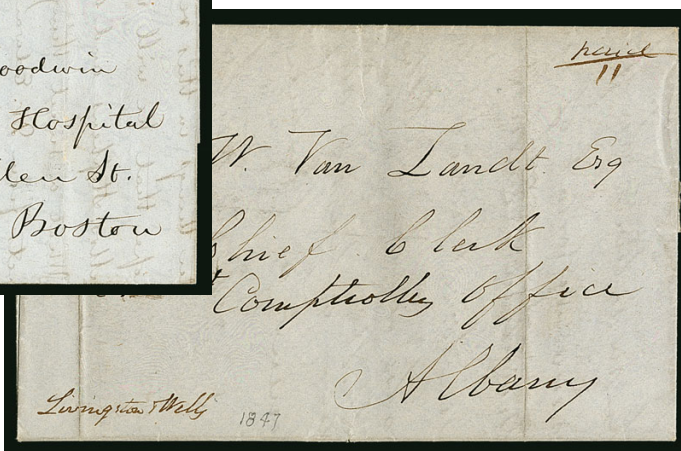 oodwin
Hospital
len St.
Boston
paid
11
W. Van Zandt Esq
Chief Clerk
Comptrollers Office
Albany
Livingston & Wells
1847